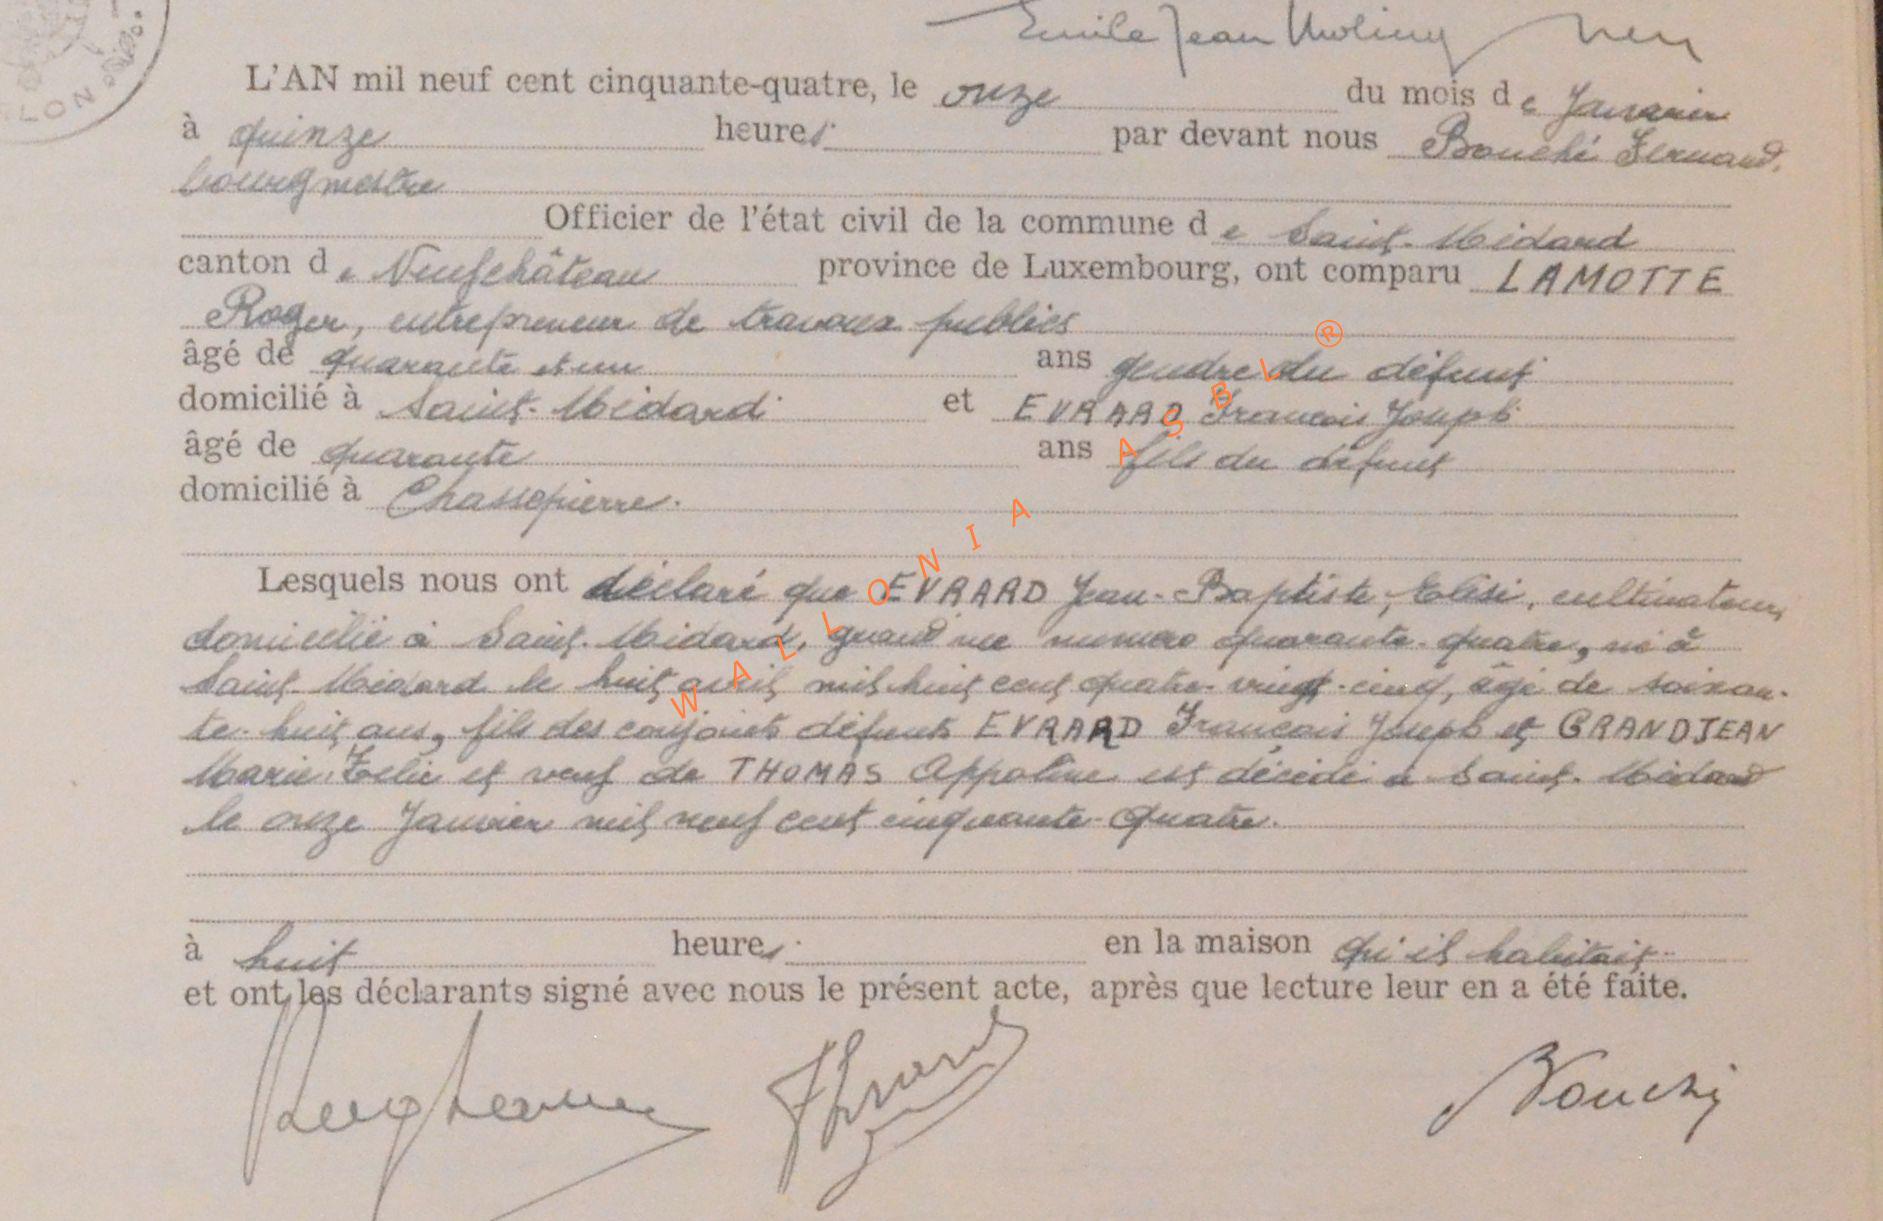 Emile Jean
L'AN mil neuf cent cinquante-quatre, le onze du mois de Janvier
à quinze heures par devant nous Bouché Fernand,
bourgmestre
Officier de l'état civil de la commune de Saint-Médard
canton de Neufchâteau province de Luxembourg, ont comparu LAMOTTE
Roger, entrepreneur de travaux publics
âgé de quarante et un ans gendre du défunt
domicilié à Saint-Médard et EVRARD François Joseph
âgé de quarante ans fils du défunt
domicilié à Chassepierre.
Lesquels nous ont déclaré que EVRARD Jean-Baptiste, Elisé, cultivateur,
domicilié à Saint-Médard, grand'rue numéro quarante-quatre, né à
Saint-Médard le huit avril mil huit cent quatre-vingt-cinq, âgé de soixan-
te-huit ans, fils des conjoints défunts EVRARD François Joseph et GRANDJEAN
Marie Zélie et veuf de THOMAS Appoline est décédé à Saint-Médard
le onze Janvier mil neuf cent cinquante-quatre.
à huit heures en la maison qu'il habitait
et ont les déclarants signé avec nous le présent acte, après que lecture leur en a été faite.
Bouché
WALLONIA ASBL ®